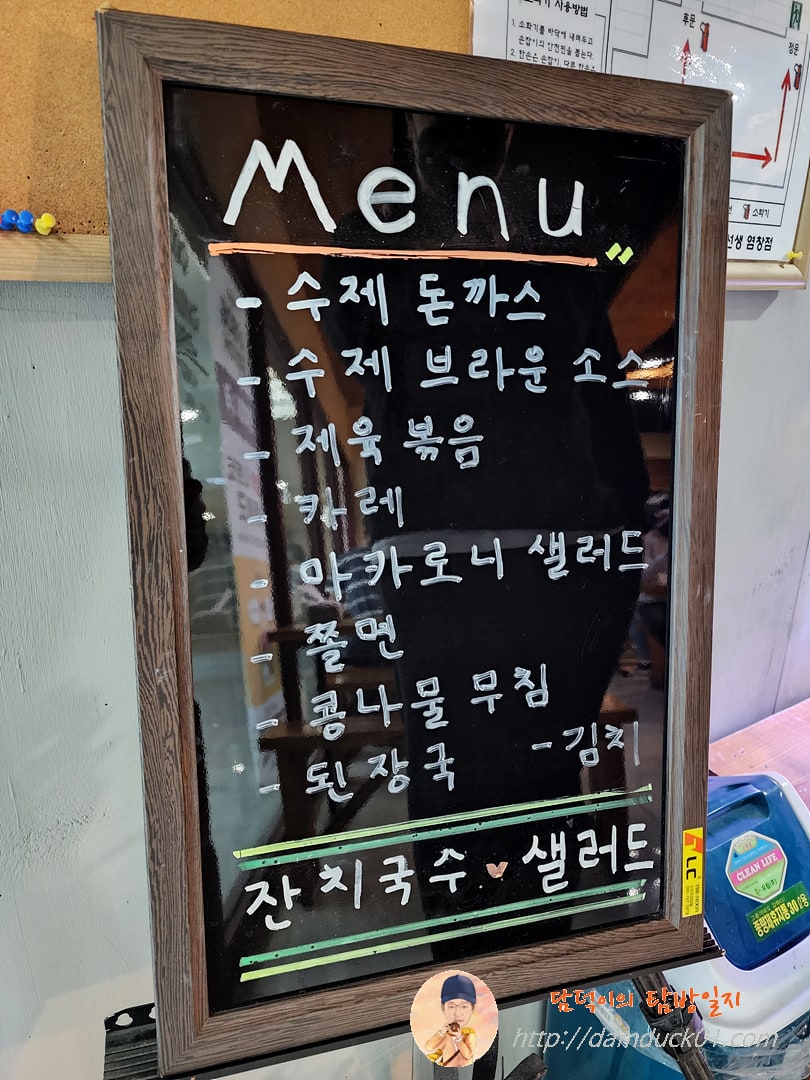 소화기 사용방법
1. 소화기를 바닥에 내려두고
손잡이의 안전핀을 뽑는다.
후문
정문
소화기
선생 염창점
Menu
- 수제 돈까스
- 수제 브라운 소스
- 제육 볶음
- 카레
- 마카로니 샐러드
- 쫄면
- 콩나물 무침
- 된장국 - 김치
잔치국수 ♥ 샐러드
YLC
CLEAN LIFE
종량제휴지통 30ℓ용
담덕이의 탐방일지
http://damduck01.com